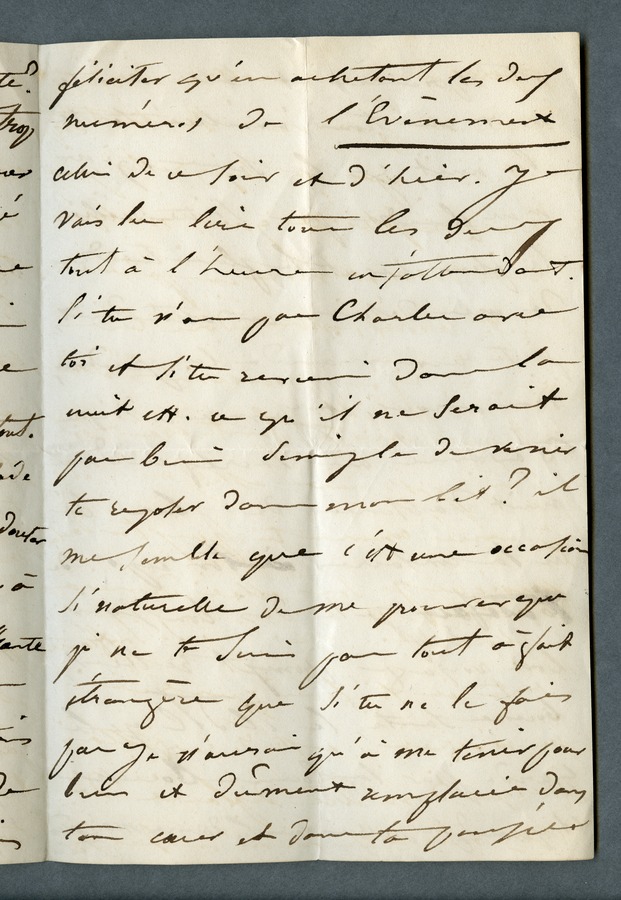 féliciter qu'en achetant les deux
numéros de l'Evènement
celui de ce soir et d'hier. Je
vais les lire tous les deux
tout à l'heure en t'attendant.
Si tu n'as pas Charles avec
toi et si tu reviens dans la
nuit est-ce qu'il ne serait
pas bien simple de venir
te reposer dans mon lit ? il
me semble que c'est une occasion
si naturelle de me prouver que
je ne te suis pas tout à fait
étrangère que si tu ne le fais
pas je n'aurai qu'à me tenir pour
bien et dûment remplacée dans
ton cœur et dans ta pensée